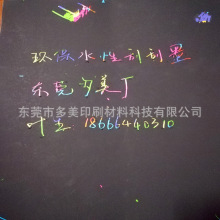 环保水性刮刮墨
东莞多美丁
东莞市多美印刷材料科技有限公司
叶生 18666440310